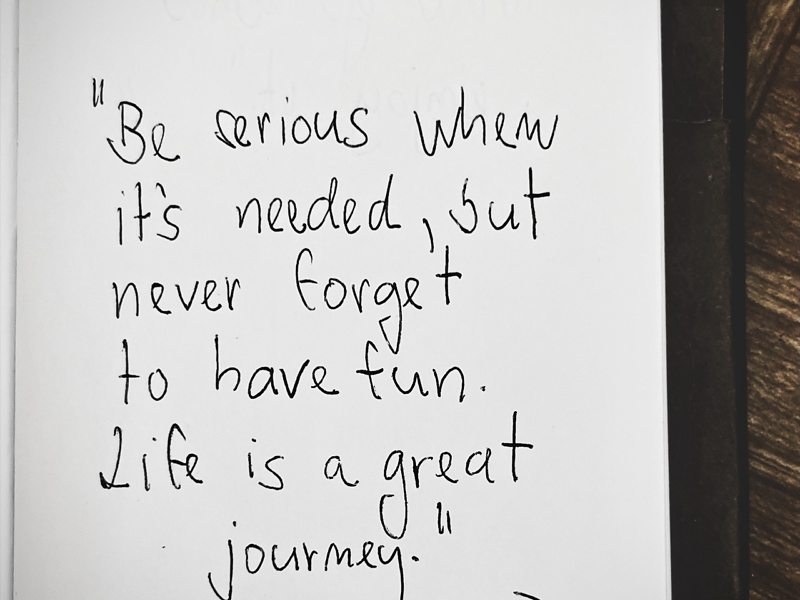 "Be serious when
it's needed, but
never forget
to have fun.
Life is a great
journey."